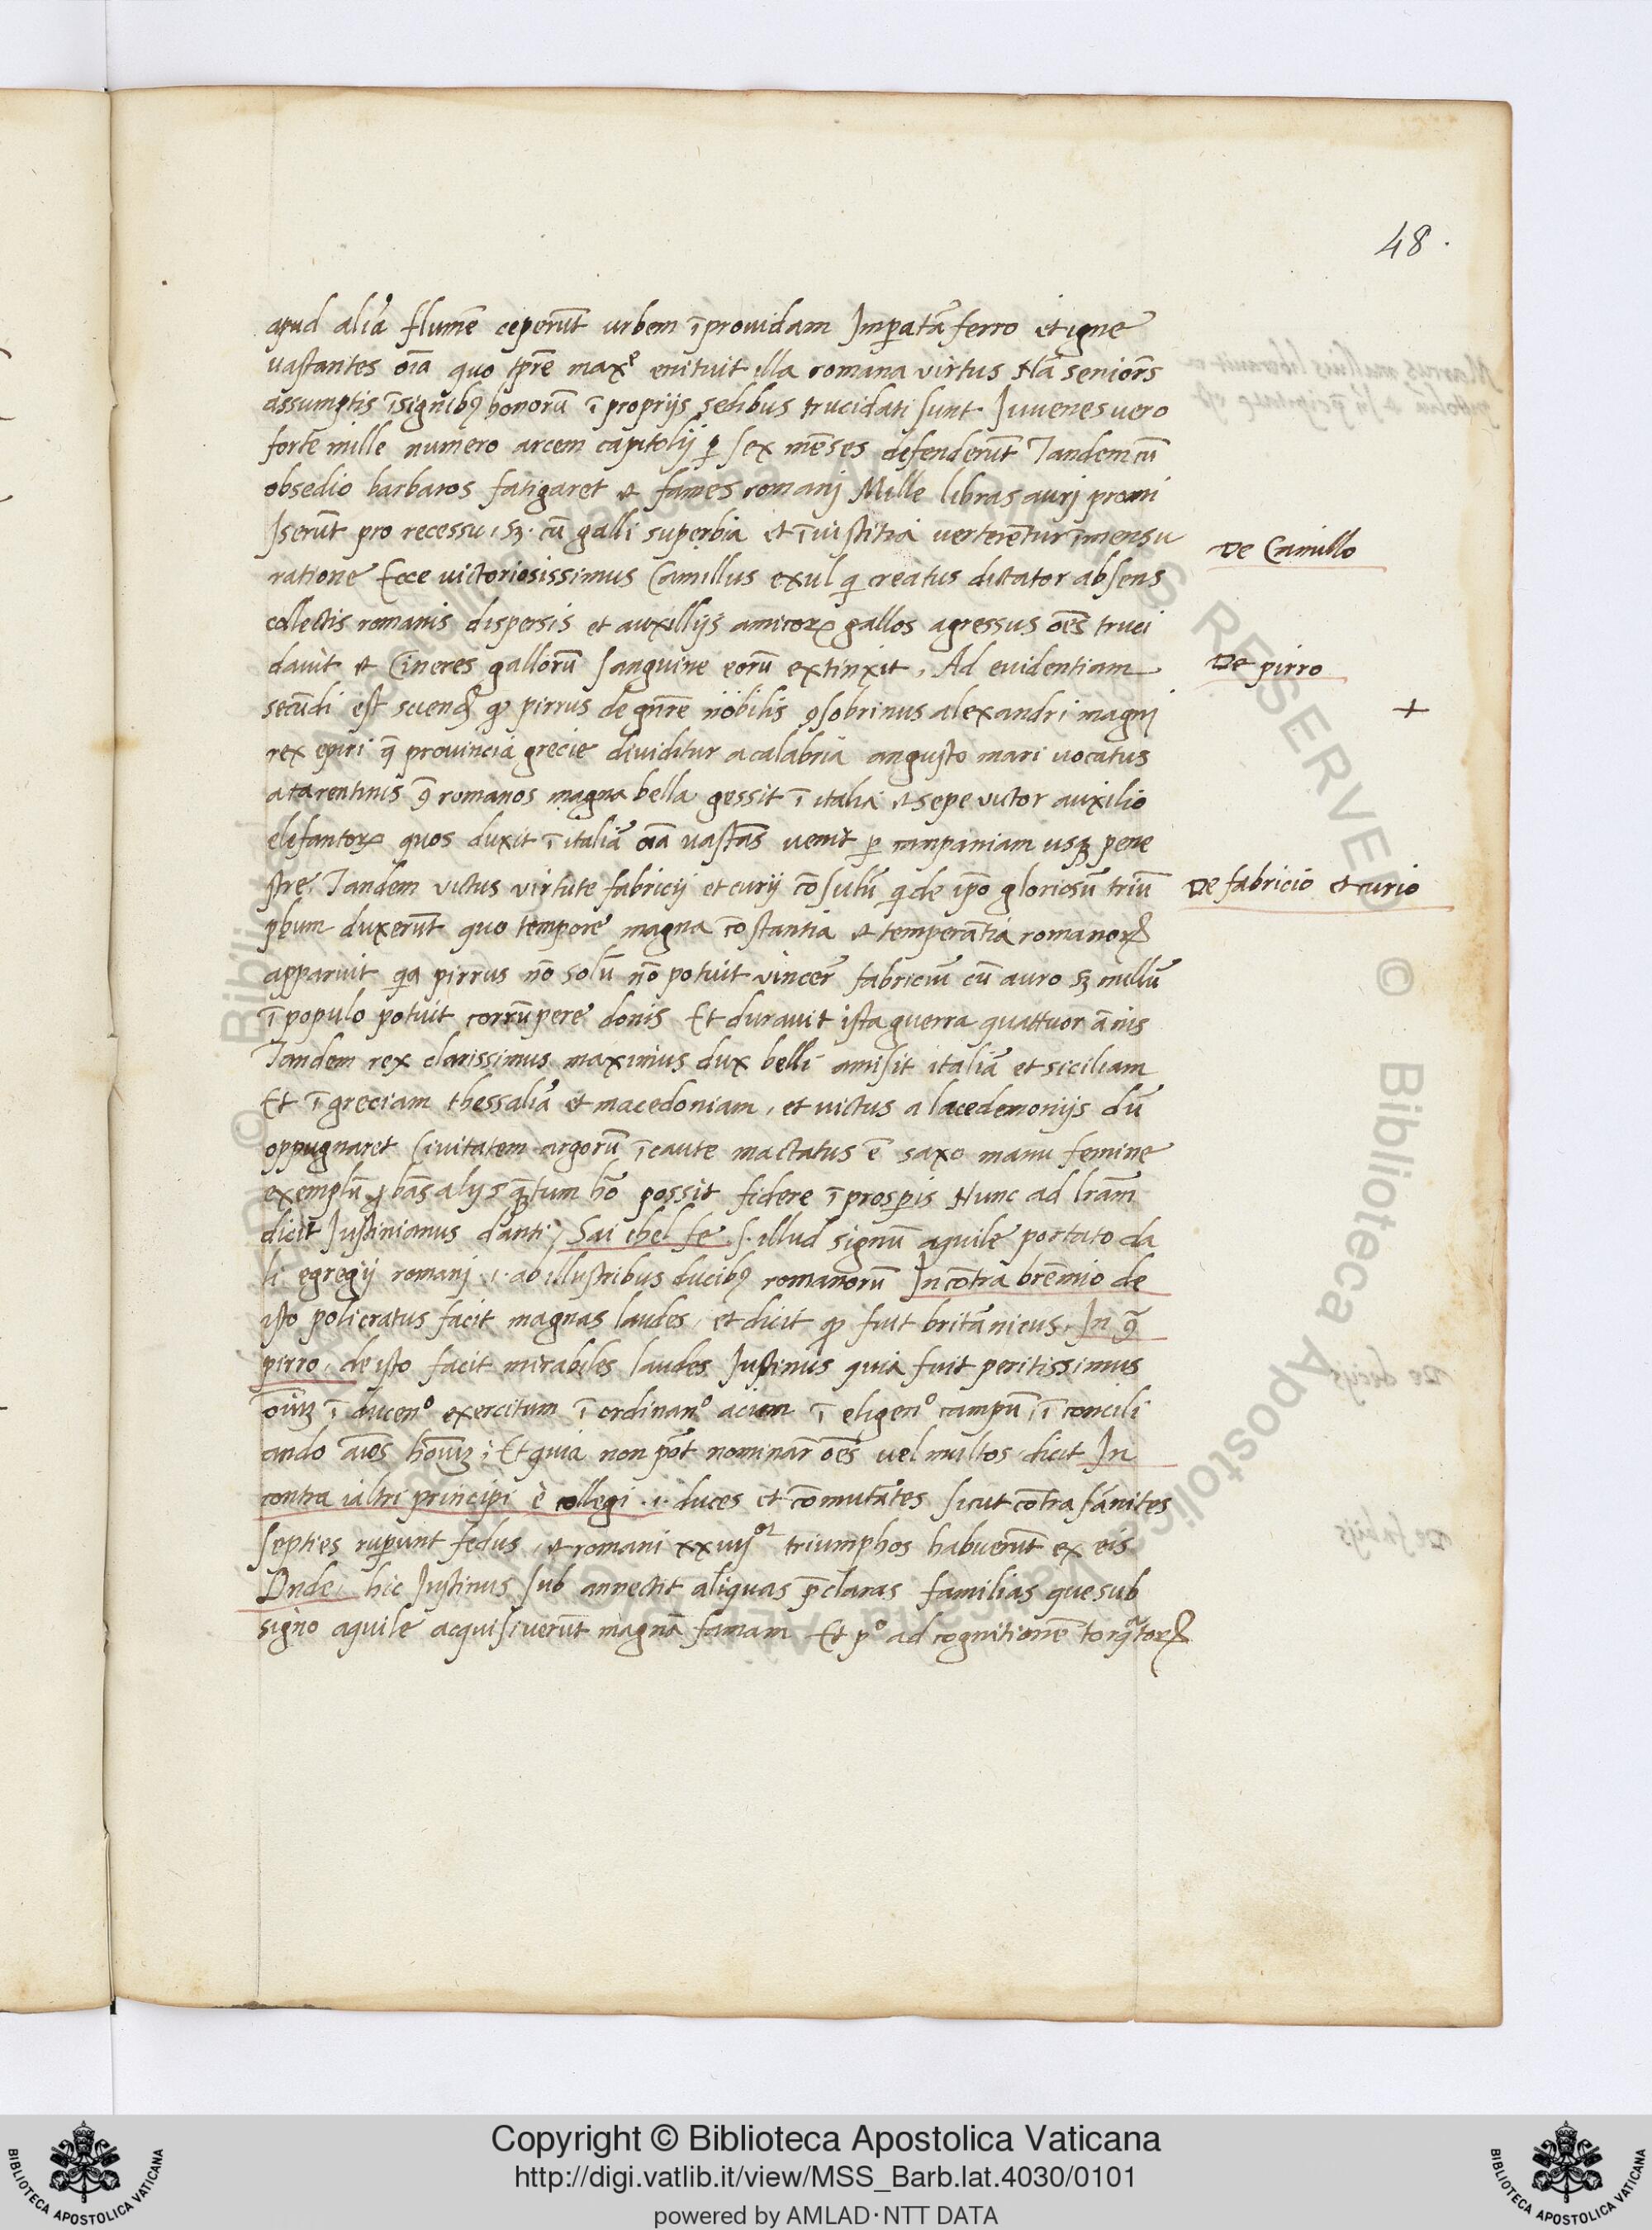 48.
apud aliā flumē ceperūt urbem īprouidam Imperatā ferro et igne
uastantes oīa quo tpre maxe enituit illa romana virtus Nā seniors
assumptis īsignibꝰ honorū ī proprijs sedibus trucidati sunt Iuuenes uero
forte mille numero arcem capitolij ꝑ sex mēses defenderūt Tandem cū
obsedio barbaros fatigaret et fames romanj Mille libras aurj promi
serūt pro recessu, sꝫ. cū galli superbia et īiustitia verterētur īmensu
De Camillo
ratione Ecce uictoriosissimus Camillus exul qi creatus dictator absens
collectis romanis dispersis et auxillijs amicorꝝ gallos agressus oēs truci
dauit et Cineres gallorū sanguine eorū extinxit, Ad euidentiam
De pirro
secūdi est sciendꝝ ꝙ pirrus de gnre nobilis ꝯsobrinus alexandri magnj
+
rex epiri q̄ prouincia grecie diuiditur a calabria angusto mari uocatus
a tarentinis ꝯ romanos magna bella gessit ī italia et sepe uictor auxilio
elefantorꝝ quos duxit ī italiā oīa uastās uenit ꝑ campaniam usqꝫ pene
stre. Tandem uictus virtute fabricij et curij cōsulū qi de ipō gloriosū triū
De fabricio et curio
phum duxerūt quo tempore magna cōstantia et temperātia romanorꝝ
apparuit qia pirrus nō solū nō potuit vincer fabriciū cū auro sꝫ nullū
ī populo potuit corrūpere donis Et durauit ista guerra quattuor ānis
Tandem rex clarissimus maximus dux belli amisit italiā et siciliam
Et ī greciam thessaliā et macedoniam, et uictus a lacedemonijs dū
oppugnaret Ciuitatem argorū īcaute mactatus ē saxo manu femine
exemplū ꝓbās alijs qtum hō possit fidere ī prosperis Nunc ad lrām
dicit Iustinianus danti, Sai chel fe s. illud signū aquile portato da
li egregij romanj .i. ab illustribus ducibꝰ romanorū Incōtra brēnio de
isto policratus facit magnas laudes, et dicit ꝙ fuit britānicus, In ꝯ
pirro, de isto facit mirabiles laudes Iustinus quia fuit peritissimus
oīuꝫ ī ducendo exercitum ī ordinando aciem ī eligendo campū, ī concili
ando aīos hoīuꝫ; Et quia non pōt nominar oēs uel multos dicit In
contra ialtri principi è collegi .i. duces et cōmutātes sicut cōtra sānites
septies ruperunt fedus, et romani xxiiijor triumphos habuerūt ex eis
Onde, hic Iustinus sub annectit aliquas p̄claras familias que sub
signo aquile acquisiuerūt magnā famam Et po ad cognitionē torqatorꝝ
Copyright © Biblioteca Apostolica Vaticana
http://digi.vatlib.it/view/MSS_Barb.lat.4030/0101
powered by AMLAD·NTT DATA
BIBLIOTECA APOSTOLICA VATICANA
BIBLIOTECA APOSTOLICA VATICANA